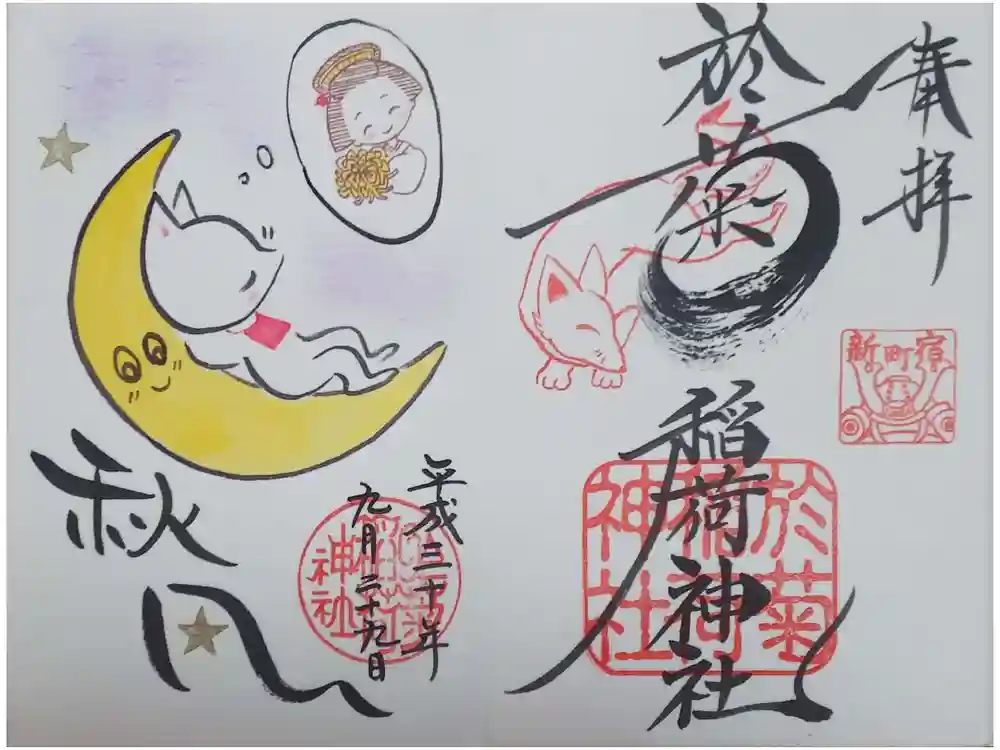 奉拝
新町宿
於菊稲荷神社
於菊
稲荷
神社
平成三十年
九月二十九日
於菊
稲荷
神社
秋